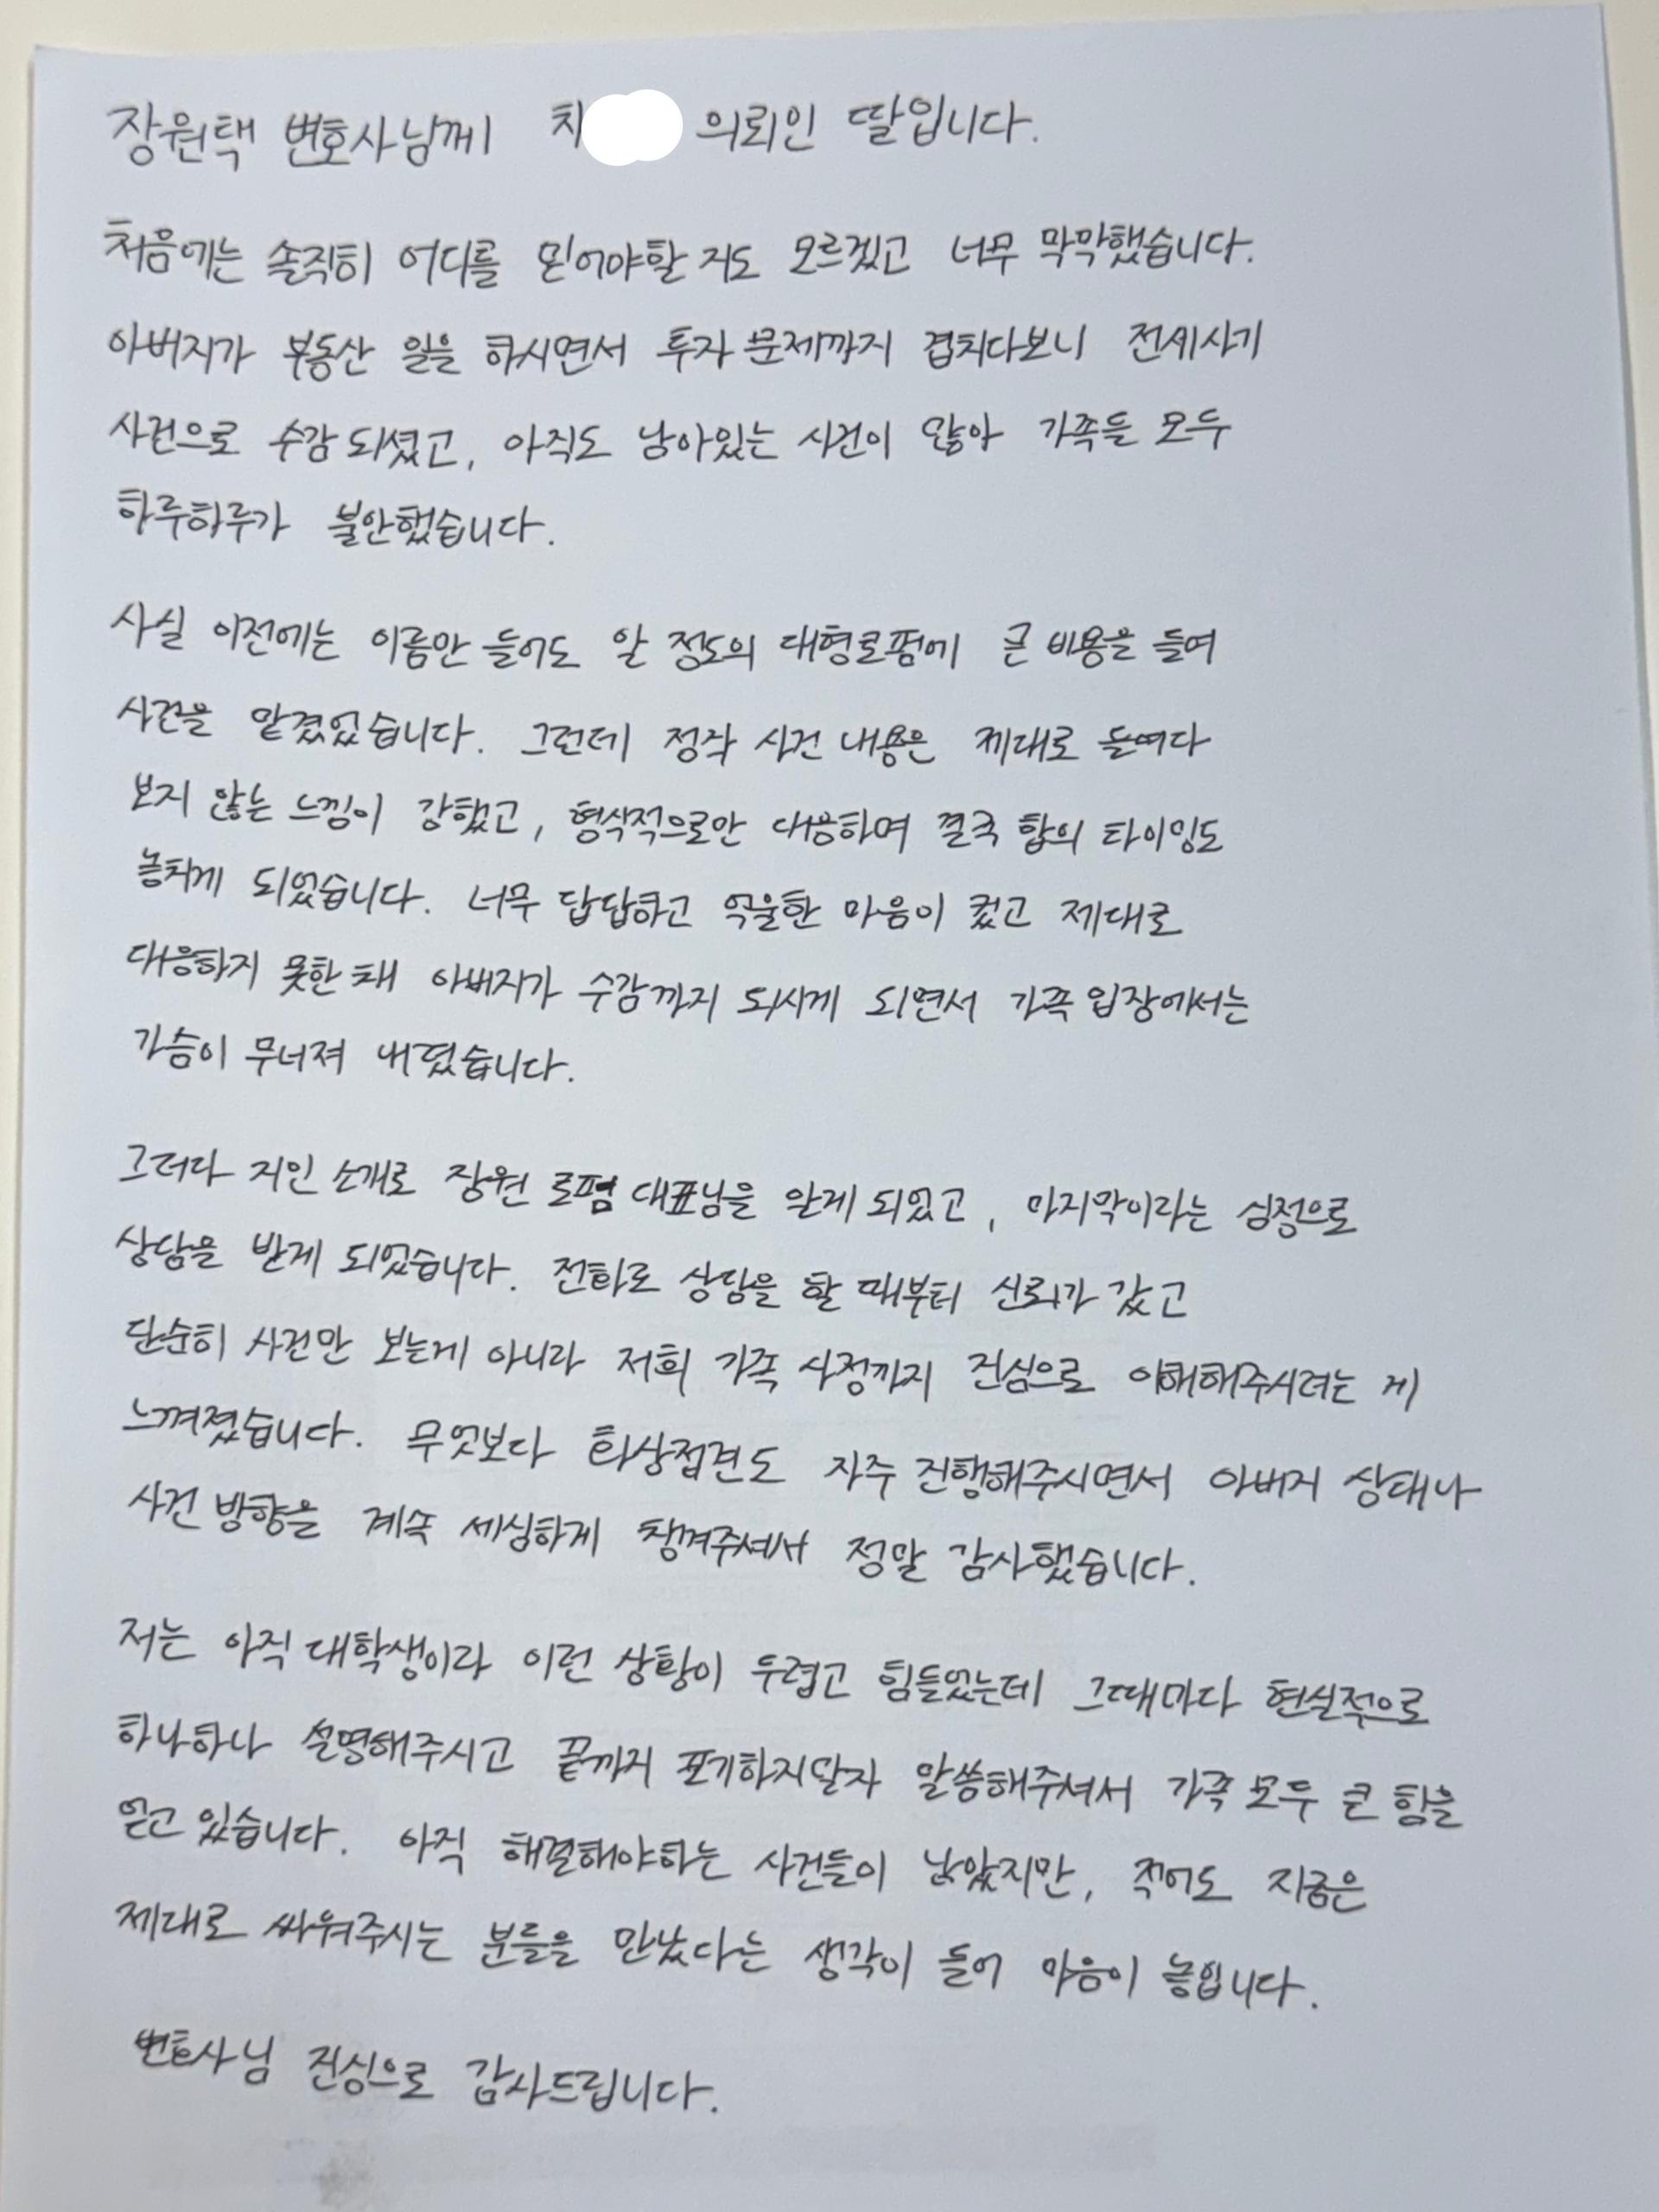 장원택 변호사님께 최 의뢰인 딸입니다.
처음에는 솔직히 어디를 믿어야할 지도 모르겠고 너무 막막했습니다.
아버지가 부동산 일을 하시면서 투자 문제까지 겹치다보니 전세사기
사건으로 수감 되셨고, 아직도 남아있는 사건이 많아 가족들 모두
하루하루가 불안했습니다.
사실 이전에는 이름만 들어도 알 정도의 대형로펌에 큰 비용을 들여
사건을 맡겼었습니다. 그런데 정작 사건 내용은 제대로 들여다
보지 않는 느낌이 강했고, 형식적으로만 대응하며 결국 합의 타이밍도
놓치게 되었습니다. 너무 답답하고 억울한 마음이 컸고 제대로
대응하지 못한 채 아버지가 수감까지 되시게 되면서 가족 입장에서는
가슴이 무너져 내렸습니다.
그러다 지인 소개로 장원 로펌 대표님을 알게 되었고, 마지막이라는 심정으로
상담을 받게 되었습니다. 전화로 상담을 할 때부터 신뢰가 갔고
단순히 사건만 보는게 아니라 저희 가족 사정까지 진심으로 이해해주시려는 게
느껴졌습니다. 무엇보다 화상접견도 자주 진행해주시면서 아버지 상태나
사건 방향을 계속 세심하게 챙겨주셔서 정말 감사했습니다.
저는 아직 대학생이라 이런 상황이 두렵고 힘들었는데 그때마다 현실적으로
하나하나 설명해주시고 끝까지 포기하지말자 말씀해주셔서 가족 모두 큰 힘을
얻고 있습니다. 아직 해결해야하는 사건들이 남았지만, 적어도 지금은
제대로 싸워주시는 분들을 만났다는 생각이 들어 마음이 놓입니다.
변호사님 진심으로 감사드립니다.